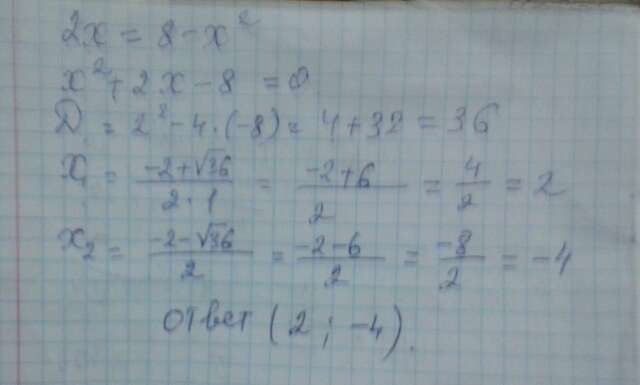 2x = 8 - x²
x² + 2x - 8 = 0
D = 2² - 4 · (-8) = 4 + 32 = 36
x₁ = (-2+√36)/(2·1) = (-2+6)/2 = 4/2 = 2
x₂ = (-2-√36)/2 = (-2-6)/2 = -8/2 = -4
ответ (2 ; -4).